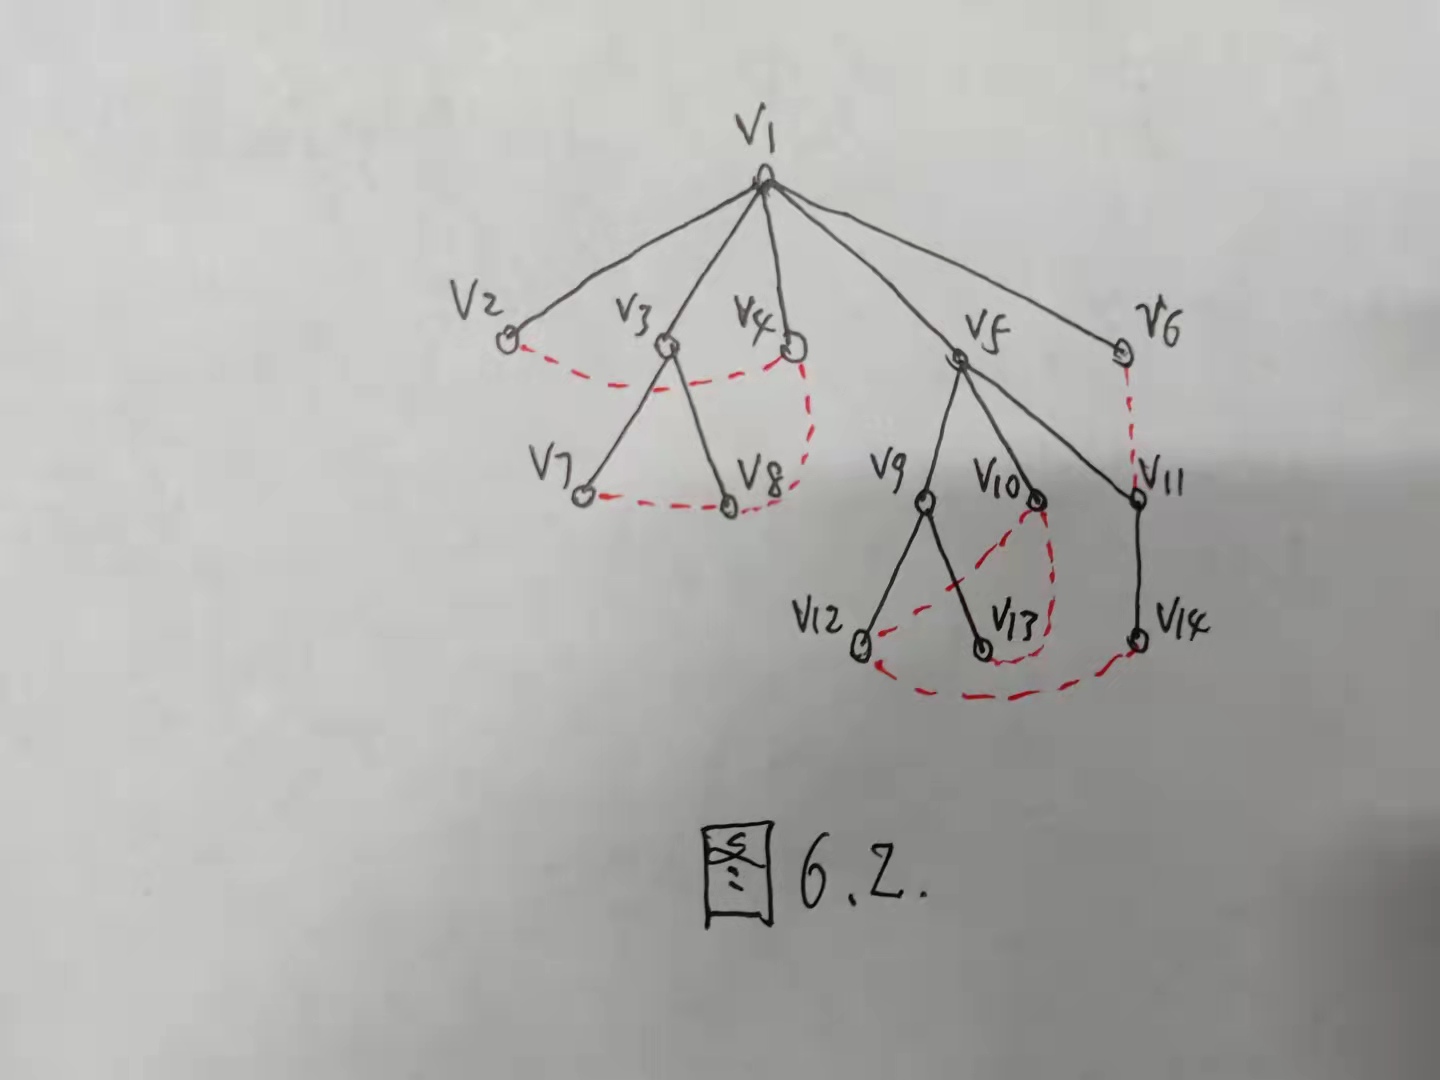 V1
V2 V3 V4 V5 V6
V7 V8 V9 V10 V11
V12 V13 V14
图 6.2.